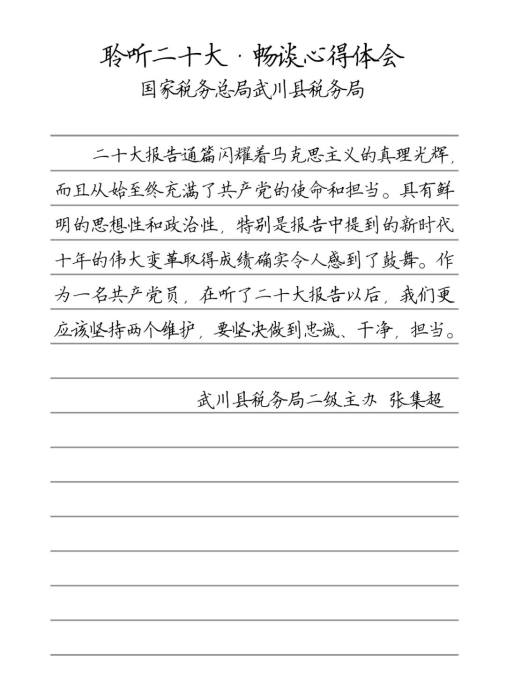 聆听二十大·畅谈心得体会
国家税务总局武川县税务局
二十大报告通篇闪耀着马克思主义的真理光辉,
而且从始至终充满了共产党的使命和担当。具有鲜
明的思想性和政治性，特别是报告中提到的新时代
十年的伟大变革取得成绩确实令人感到了鼓舞。作
为一名共产党员，在听了二十大报告以后，我们更
应该坚持两个维护，要坚决做到忠诚、干净，担当。
武川县税务局二级主办 张集超